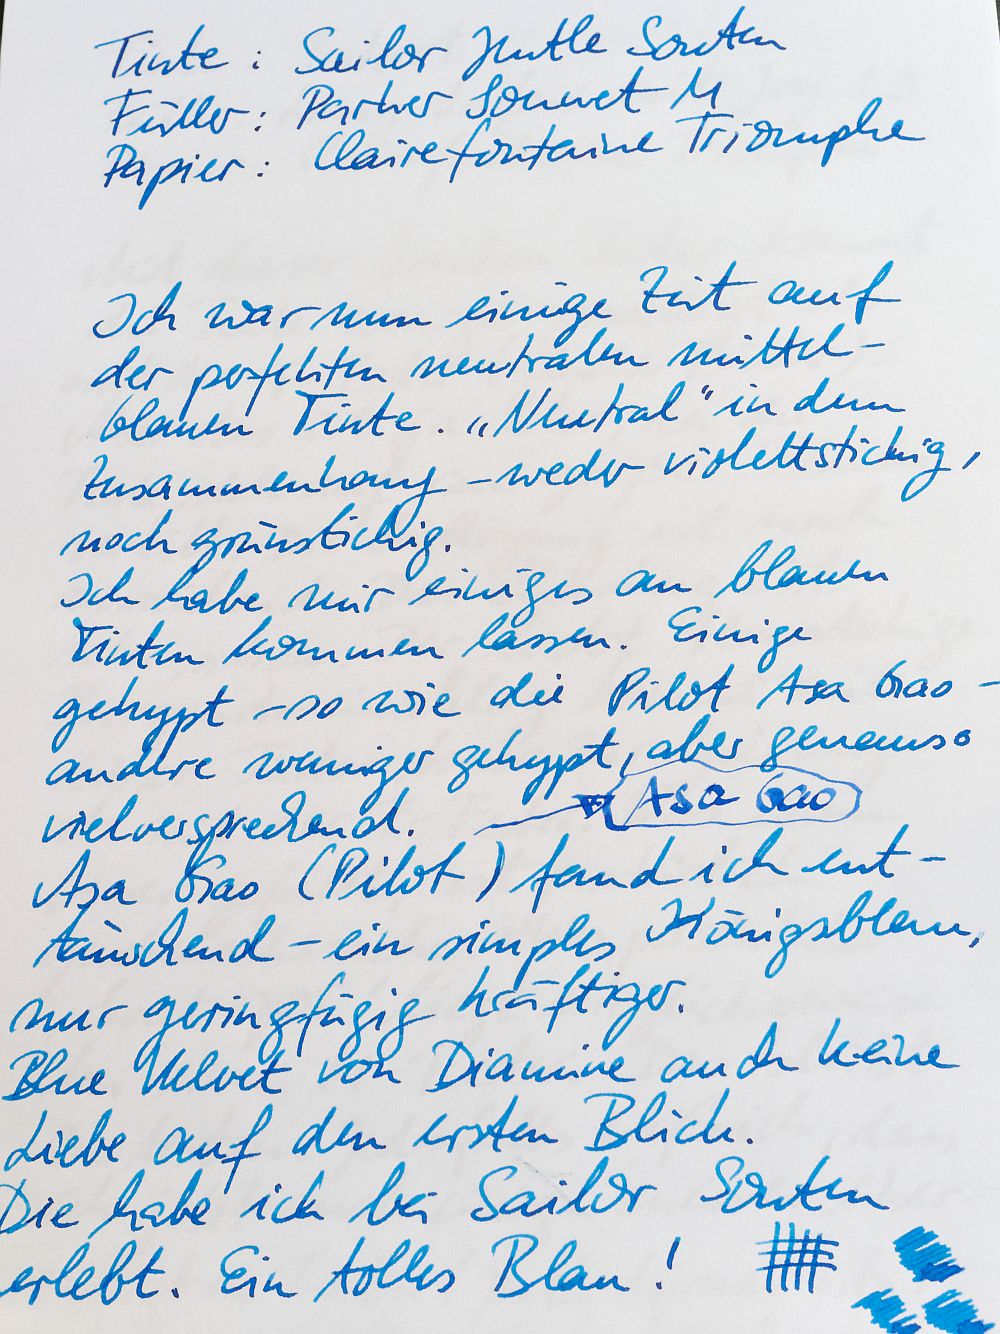 Tinte: Sailor Jentle Souten
Füller: Parker Sonnet M
Papier: Clairefontaine Triomphe
Ich war nun einige Zeit auf
der perfekten neutralen mittel-
blauen Tinte. „Neutral“ in dem
Zusammenhang – weder violettstichig,
noch grünstichig.
Ich habe mir einiges an blauen
Tinten kommen lassen. Einige
gehypt – so wie die Pilot Asa Gao –
andere weniger gehypt, aber genauso
vielversprechend. Asa Gao
Asa Gao (Pilot) fand ich ent-
täuschend – ein simples Königsblau,
nur geringfügig kräftiger.
Blue Velvet von Diamine auch keine
Liebe auf den ersten Blick.
Die habe ich bei Sailor Souten
erlebt. Ein tolles Blau!